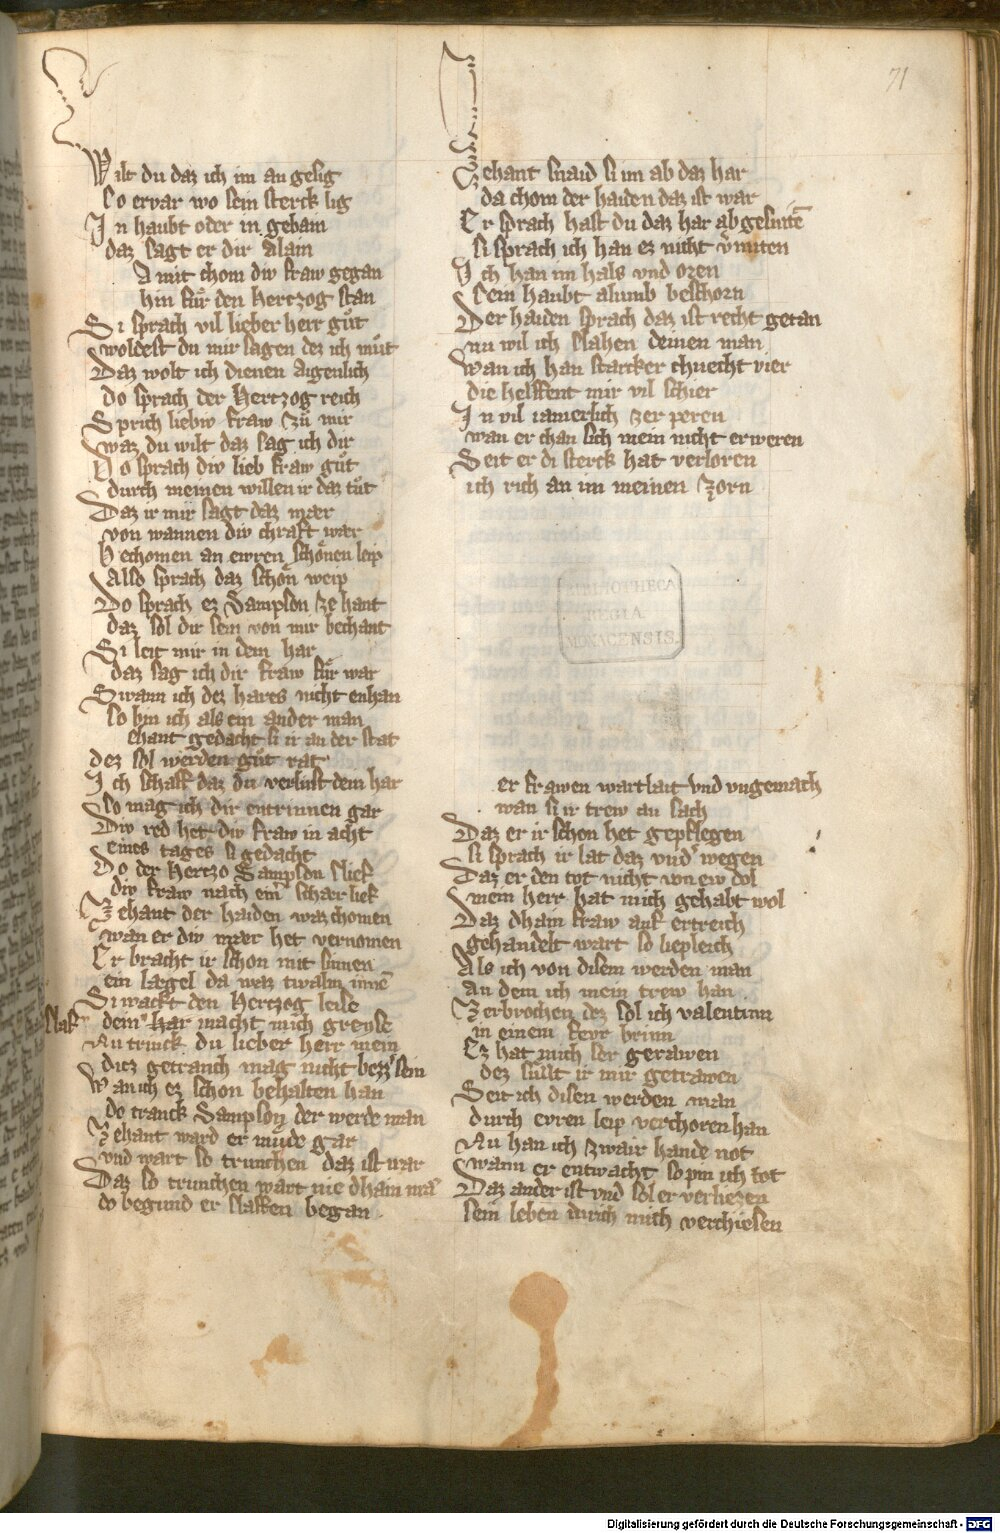 71
Wilt du daz ich im an gesig
So ervar wo sein sterck lig
In haubt oder in gebain
daz sagt er dir Alain
Amit chom diw fraw gegan
hin für den Hertzog stan
Si sprach vil lieber herr gůt
woldest du mir sagen dez ich můt
Daz wolt ich dienen Aigenlich
do sprach der Hertzog reich
Sprich liebiw fraw zů mir
waz du wilt daz sag ich dir
Do sprach diw lieb fraw gůt
durch meinen willen ir daz tůt
Daz ir mir sagt daz mær
von wannen diw chraft wær
Bechomen an ewren schönen leip
Also sprach daz schön weip
Do sprach ez Sampson ze hant
daz sol dir sein von mir bechant
Si leit mir in dem har
daz sag ich dir fraw für war
Swann ich dez hares nicht enhan
so bin ich als ein ander man
ehant gedacht si ir an der stat
dez sol werden gůt rat
Ich schaff daz du verlust dem har
So mag ich dir entrinnen gar
Diw red het diw fraw in acht
eines tages si gedacht
Do der Hertzo Sampson slief
diw fraw nach einr schær lief
Zehant der haiden waz chomen
wan er diw mær het vernomen
Er bracht ir schon mit sinnen
ein lægel da waz twalm inne
Si wackt den Hertzog leise
slaf dem har macht mich greyse
Nu trinck du lieber herr mein
dicz getranch mag nicht bezzer sein
Wan ich ez schon behalten han
do tranck Sampson der werde man
Zehant ward er müde gar
vnd wart so trunchen daz ist war
Daz so trunchen wart nie dhain mā
do begund er slaffen began
Zehant snaid si im ab daz har
da chom der haiden daz ist war
Er sprach hast du daz har ab gesnitē
si sprach ich han ez nicht vermiten
Ich han im hals vnd oren
Sein haubt alumb beschorn
Der haiden sprach daz ist recht getan
nu wil ich slahen deinen man
Wan ich han starcker chnecht vier
die helffent mir vil schier
In vil iamerlich zer peren
wan er chan sich mein nicht erweren
Seit er di sterck hat verloren
ich rich an im meinen Zorn
BIBLIOTHECA
REGIA
MONACENSIS.
er frawen wart lait vnd vngemach
wan si ir trew an sach
Daz er ir schon het gepflegen
si sprach ir lat daz vnder wegen
Daz er den tot nicht von ew dol
mein herr hat mich gehabt wol
Daz dhain fraw auf ertreich
gehandelt wart so liepleich
Als ich von disem werden man
an dem ich mein trew han
Zerbrochen dez sol ich valentinn
in einem fevr brinn
Ez hat mich ser gerawen
dez sullt ir mir getrawen
Seit ich disen werden man
durch evren leip verchoren han
Nu han ich zwair hande not
wann er entwacht so pin ich tot
Daz ander ist vnd sol er verliezen
sein leben durch mich verchiesen
Digitalisierung gefördert durch die Deutsche Forschungsgemeinschaft - DFG